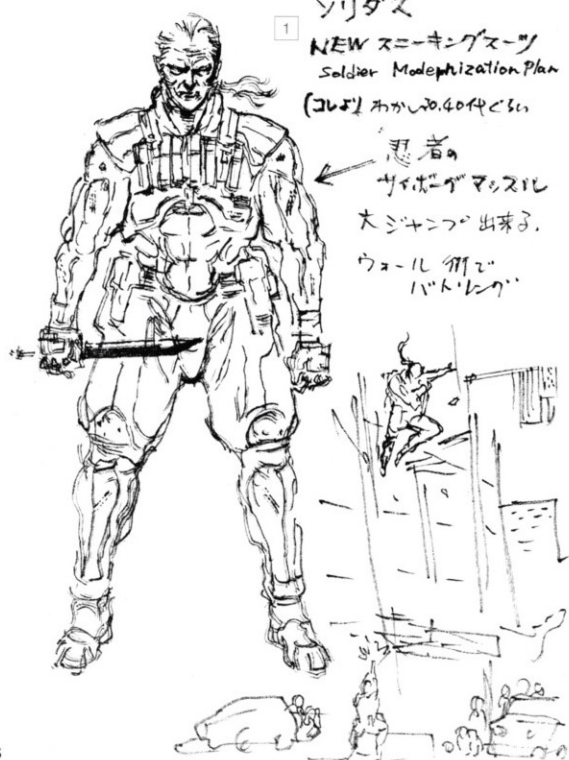 1
ソリダス
NEW スニーキングスーツ
Soldier Modephization Plan
(コレより わかい。30.40代ぐらい
忍者の
サイボーグ マッスル
大ジャンプ 出来る.
ウォール 術で
バトリング